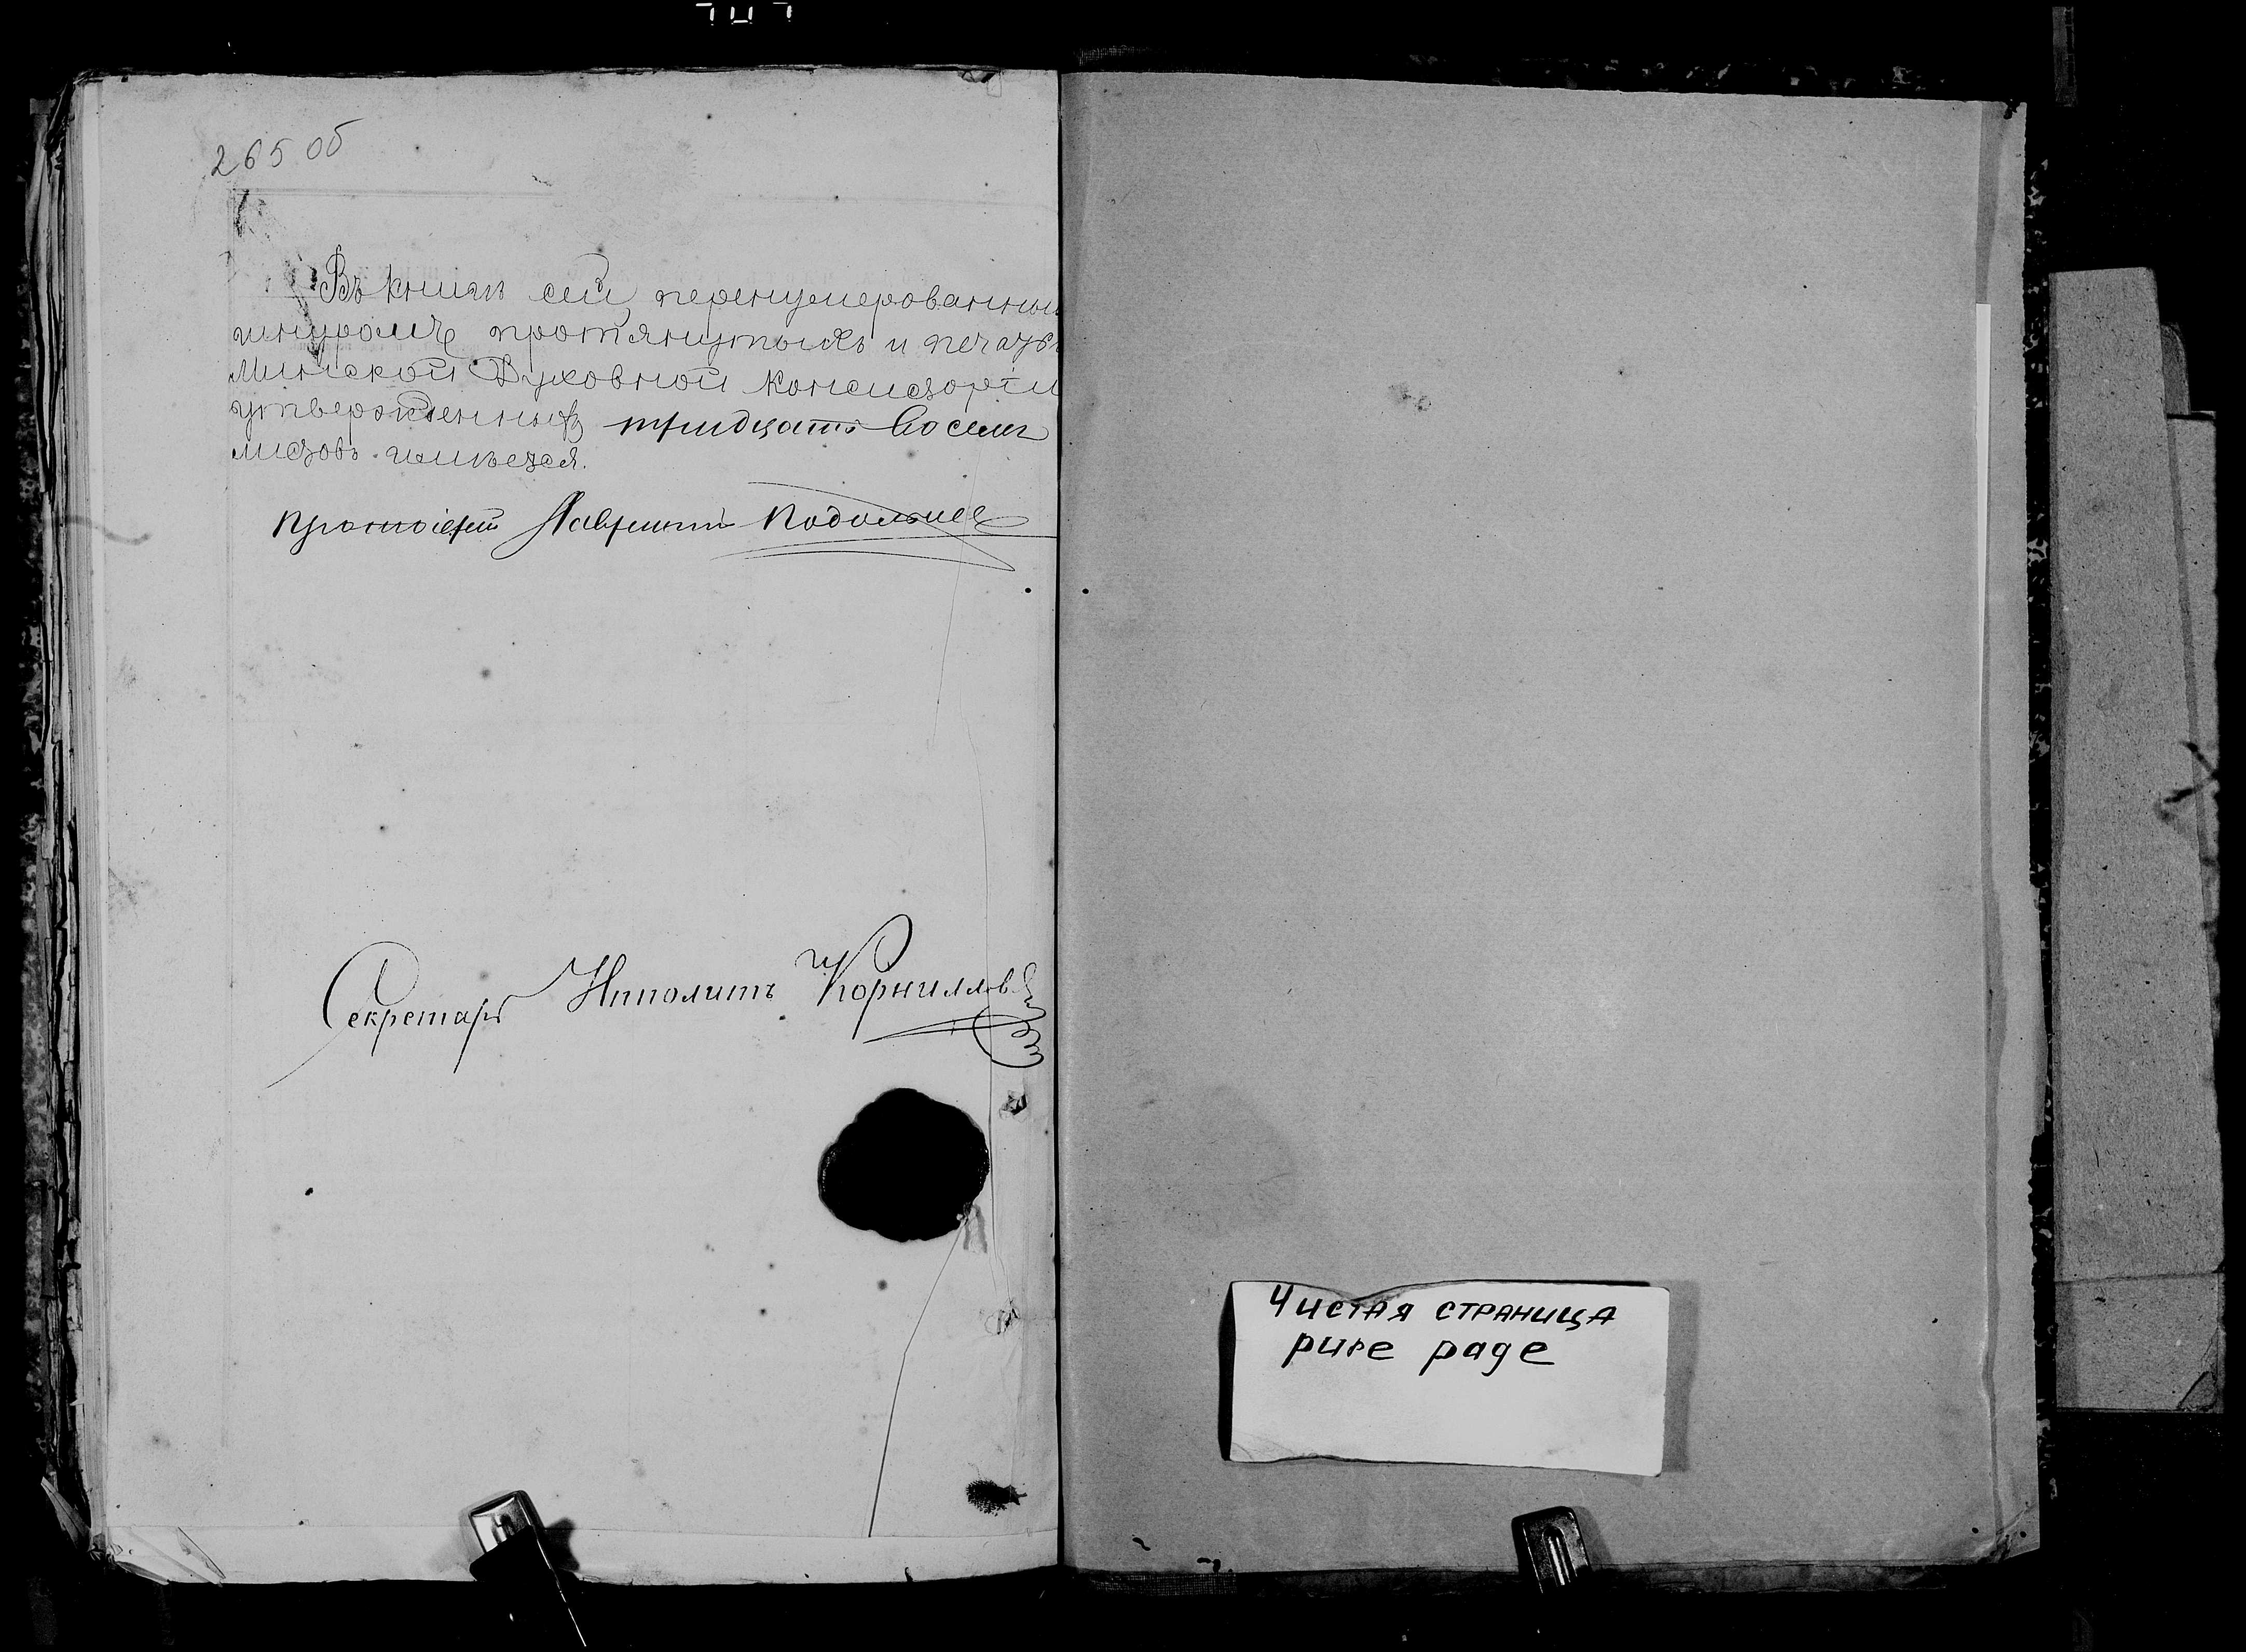 265 об
Въ книгѣ сей, перенумерованны
шнуромъ протянутыхъ и печатью
Минской Духовной Консисторіи
утвержденныхъ тридцать восемь
листовъ имѣется.
Протоіерей Лаврентій
Секретарь Ипполитъ Корниловъ
Чистая страница
pure page